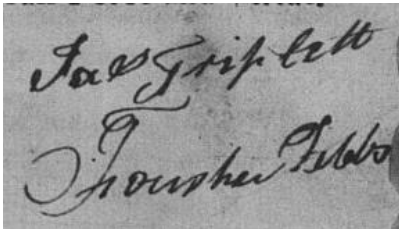 Jas Triplett
Frousher Tebbs